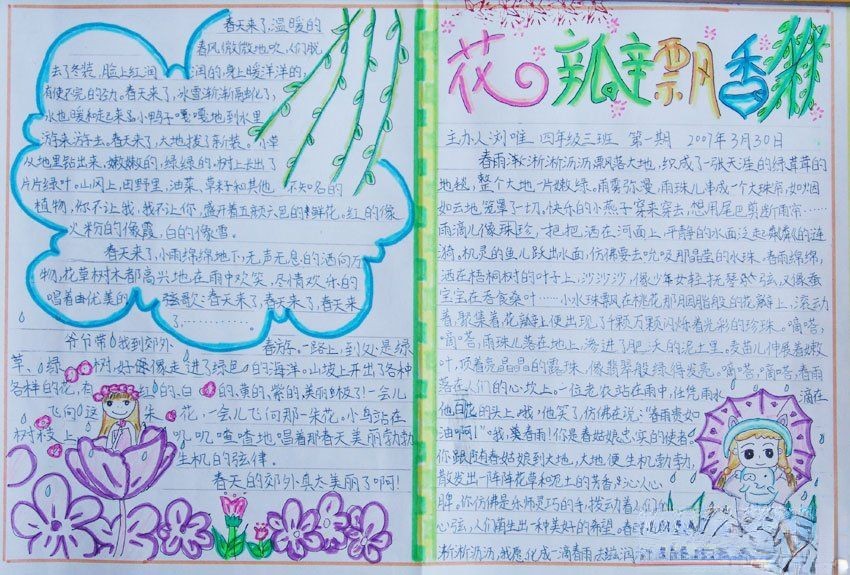 春天来了,温暖的
春风微微地吹,人们脱
去了冬装,脸上红润润的,身上暖洋洋的,
有使不完的劲。春天来了,冰雪渐渐融化了,
水也暖和起来,小鸭子嘎嘎地到水里
游来游去。春天来了,大地换了新装。小草
从地里钻出来,嫩嫩的,绿绿的,树上长出了
片片绿叶。山冈上,田野里,油菜、草籽和其他不知名的
植物,你不让我,我不让你,盛开着五颜六色的鲜花,红的像
火,粉的像霞,白的像雪。
春天来了,小雨绵绵地下,无声无息的洒向万
物,花草树木都高兴地在雨中欢笑,尽情欢乐的
唱着由优美的弦歌:春天来了,春天来了,春天来
了…………。
爷爷带我到郊外春游。一路上,到处是绿
草、绿树,好像走进了绿色的海洋。山坡上开出了各种
各样的花,有红的、白的、黄的、紫的,美丽极了!一会儿
飞向这朵花,一会儿飞向那一朵花。小鸟站在
树枝上叽叽喳喳地唱着那春天美丽勃勃
生机的弦律。
春天的郊外真太美丽了啊!
花瓣飘香
主办人刘唯 四年级三班 第一期 2007年3月30日
春雨淅淅沥沥飘落大地,织成了一张天涯的绿茸茸的
地毯,整个大地一片嫩绿。雨雾弥漫,雨珠儿串成一个大珠帘,如烟
如云地笼罩了一切。快乐的小燕子穿来穿去,想用尾巴剪断雨帘……
雨滴儿像珠珍,一把把洒在河面上,平静的水面泛起粼粼的涟
漪。机灵的鱼儿跃出水面,仿佛要去吮吸那晶莹的水珠。春雨绵绵,
洒在梧桐树的叶子上,沙沙沙,像少年女轻抚琴弦,又像蚕
宝宝在吞食桑叶……小水珠飘在桃花那胭脂般的花瓣上,滚动
着,聚集着,花瓣上便出现了千颗万颗闪烁着光彩的珍珠。嘀嗒,
嘀嗒,雨珠儿落在地上,渗进了肥沃的泥土里。麦苗儿伸展着嫩
叶,顶着亮晶晶的露珠,像翡翠般绿得发亮。嘀嗒,嘀嗒,春雨
落在人们的心坎上。一位老农站在雨中,任凭雨水滴在
他的头上,哦!他笑了,仿佛在说:“春雨贵如
油啊!”哦,春雨!你是春姑娘忠实的使者,
你跟随春姑娘到大地,大地便生机勃勃,
散发出一阵阵花草和泥土的芳香,沁人心
脾。你仿佛是乐师灵巧的手,拨动着人们的
心弦,人们萌生出一种美好的希望。春
淅淅沥沥,我愿化成一滴春雨去滋润